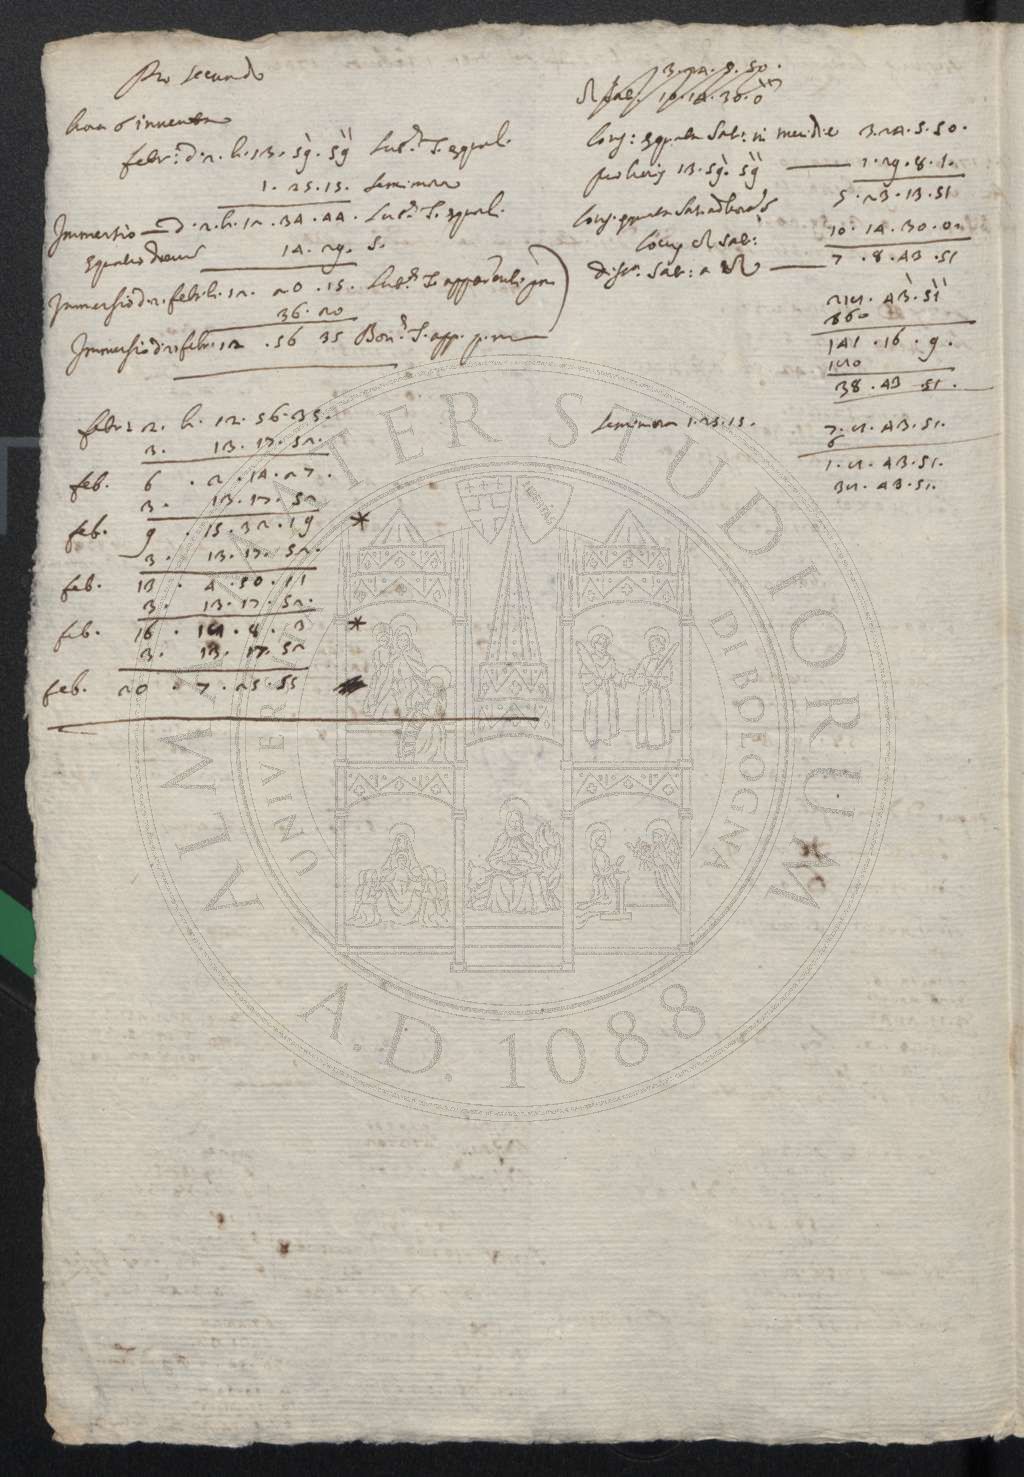 Pro secundo
hora 6 inventa
febr: d. 2. h. 13. 59. 59 Lut. T. equal.
1. 25. 15. semimora
Immersio — d. 2. h. 12. 34. 44. Lut. T. equal.
Equatio dierum 14. 29. s.
Immersio d. 2. febr. h. 12. 20. 15. Lut. T. app.
36. 20
Immersio d. 2. febr. 12. 56 35 Bon. T. app. p. m
febr 2. h. 12. 56. 35.
3. 13. 17. 52.
feb. 6. 2. 14. 27.
3. 13. 17. 52
feb. 9. 15. 32. 19 *
3. 13. 17. 52.
feb. 13. 4. 50. 11
3. 13. 17. 52.
feb. 16. 18. 8. 3 *
3. 13. 17. 52
feb. 20. 7. 25. 55
3. 24. 5. 50.
10. 14. 30. 0
Long: equata Sat: in meridie 3. 24. 5. 50.
pro horis 13. 59. 59 — 1. 29. 8. 1.
5. 23. 13. 51
10. 14. 30. 0.
locus Sat:
dist. Sat: a — 7. 8. 43. 51
218. 43. 51
360
141. 16. 9.
180
38. 43 51.
semimora 1. 25. 15.
7. 8. 43. 51.
6
1. 8. 43. 51.
38. 43. 51.
ALMA MATER STUDIORUM
UNIVERSITÀ DI BOLOGNA
A.D. 1088